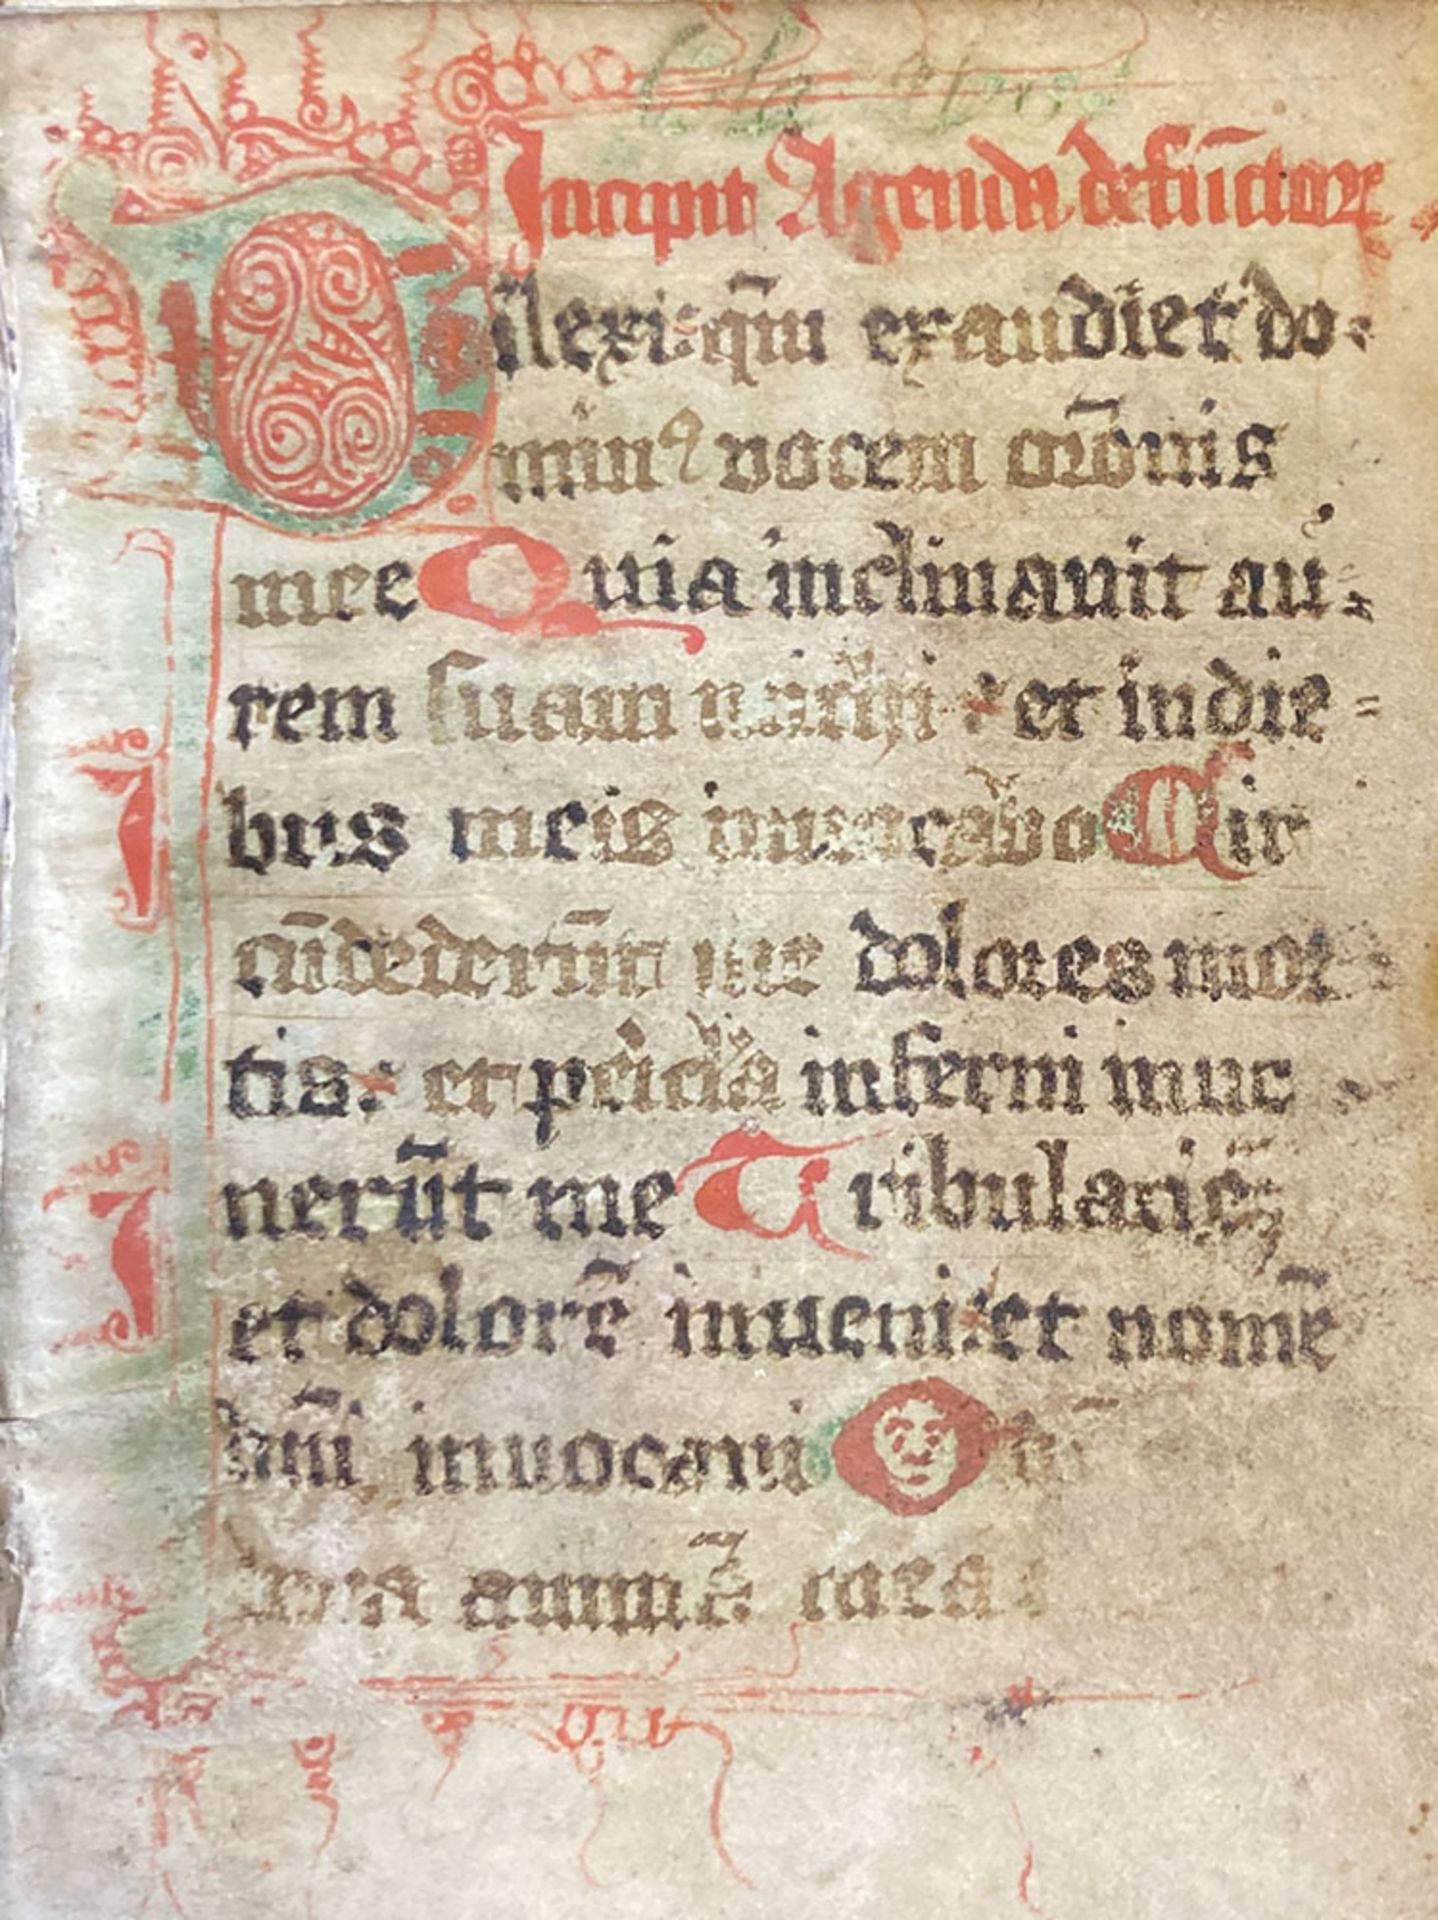 Incipit Agenda defūctoꝝ
Dilexi: qm̄ exaudiet do-
minꝰ vocem orōnis
mee Quia inclinauit au-
rem suam michi : et in die-
bus meis inuocabo Cir
cūdederūt me dolores mor-
tis: et pericula inferni inue-
nerūt me Tribulacōeꝫ
et dolorē inueni: et nomē
dn̄i inuocaui O
animā